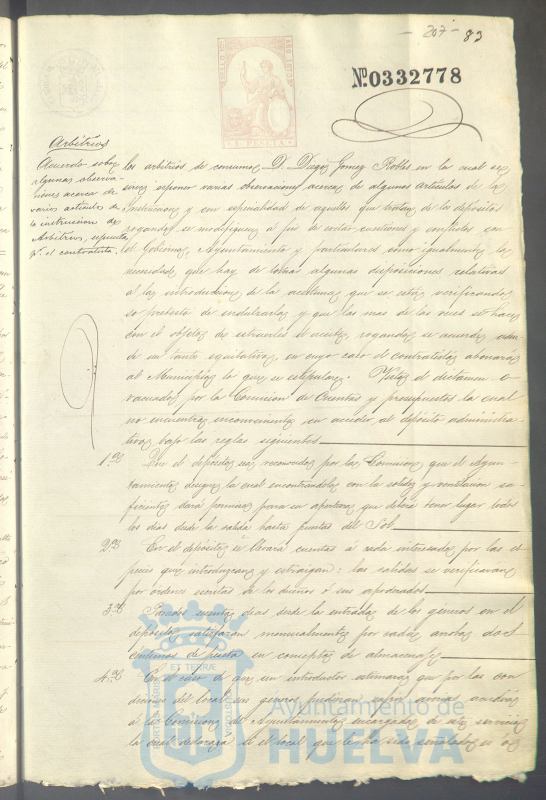 - 207 - 83
SELLO 11º AÑO 1878
1 PESETA
Nº 0332778
Arbitrios
Acuerdo sobre
algunas observa-
ciones acerca de
varios artículos de
la instruccion de
Arbitrios, expuesta
pr. el contratista.
los arbitrios de consumos D. Diego Gomez Robles en la cual se
sirve esponer varias observaciones acerca de algunos artículos de la
Instruccion y con especialidad de aquellos que tratan de los depositos
rogando se modifiquen á fin de evitar cuestiones y conflictos con
el Gobierno, Ayuntamiento y particulares como igualmente la
necesidad que hay de tomar algunas disposiciones relativas
á las introducciones de la aceituna que se está verificando
so pretesto de endulzarla y que las mas de las veces se hace
con el objeto de estraerles el aceite, rogando se acuerde
de un tanto equitativo, en cuyo caso el contratista abonará
al Municipio lo que se estipulare. Visto el dictamen e-
vacuado por la Comision de Cuentas y presupuestos la cual
no encuentra inconveniente en acceder al depósito administra-
tivo bajo las reglas siguientes
1.ª Que el depósito sea reconocido por la Comision que el Ayun-
tamiento designe la cual encontrándole con la solidez y ventilacion su-
ficientes dará permiso para su apertura que deberá tener lugar todos
los dias desde la salida hasta puestas del Sol
2.ª En el depósito se llevará cuenta á cada interesado por las es-
pecies que introduzcan y estraigan: las salidas se verificarán
por órdenes escritas de los dueños ó sus apoderados
3.ª Pasados sesenta dias desde la entrada de los géneros en el
depósito satisfarán mensualmente por cada arroba doce
céntimos de peseta en concepto de almacenaje
4.ª En el caso de que un introductor estimara que por las con
diciones del local sus géneros pudieran sufrir averias acudirá
á la Comision de Ayuntamiento encargada de este servicio
la cual declarará si el local que le ha sido señalado es ó
PORTUS MARIS ET TERRAE CUSTODIA
Ayuntamiento de
HUELVA